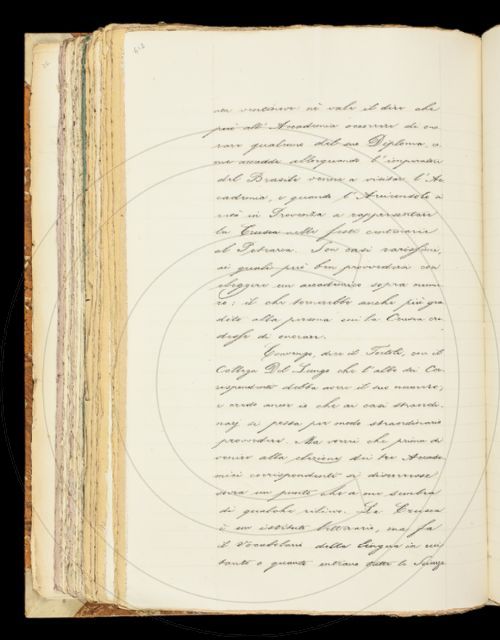 612
ner ventinove nè vale il dire che
può all'Accademia occorrere di ono-
rare qualcuno del suo Diploma, co-
me accadde allorquando l'imperatore
del Brasile venne a visitar l'Ac-
cademia, e quando l'Arciconsolo a-
andò in Provenza a rappresentare
la Crusca nelle feste centenarie
al Petrarca. Son casi rarissimi,
ai quali può ben provvedersi con
eleggere un accademico sopra nume-
ro; il che tornerebbe anche più gra-
dito alla persona cui la Crusca cre-
desse di onorare.
Convengo, dice il Tortoli, con il
Collega Del Lungo che l'albo dei Cor-
rispondenti debba avere il suo numero,
e credo ancor io che ai casi straordi-
narj si possa per modo straordinario
provvedere. Ma vorrei che prima di
venire alla elezione dei tre Accade-
mici corrispondenti si discorresse
sopra un punto che a me sembra
di qualche rilievo. La Crusca
è un istituto letterario, ma fa
il Vocabolario della lingua in cui
tanto o quanto entrano tutte le Scienze